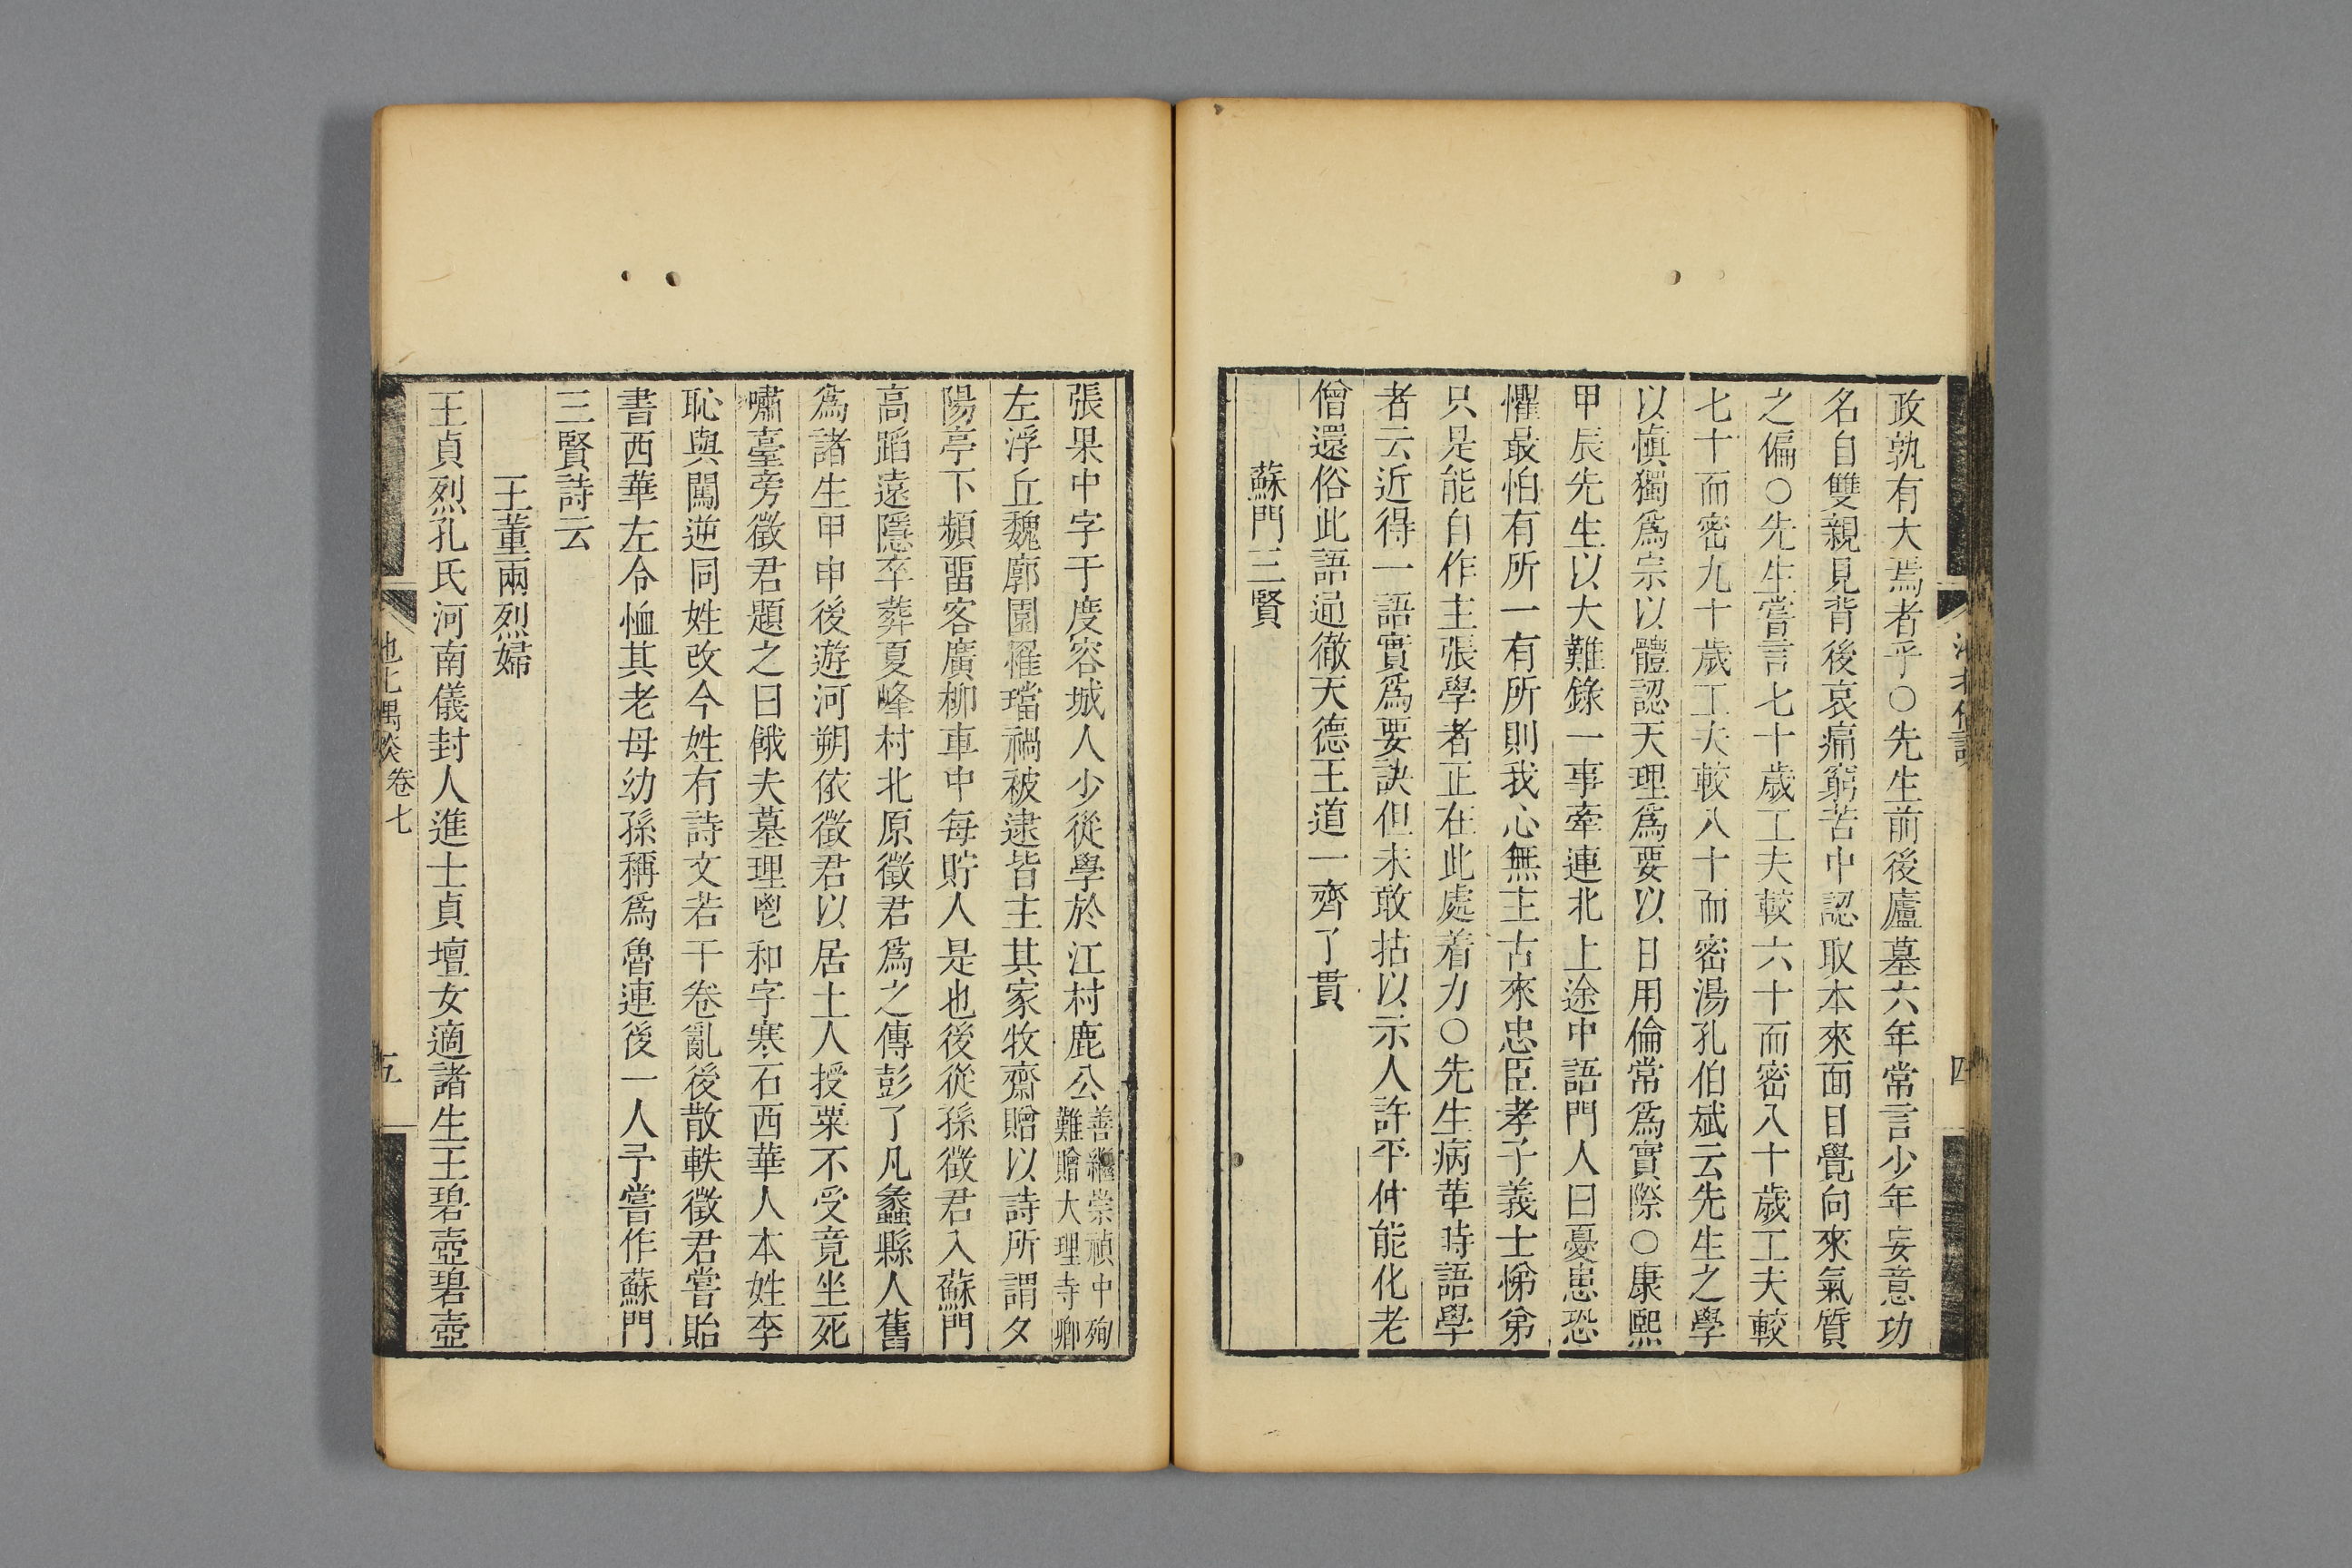 政孰有大焉者乎○先生前後廬墓六年常言少年妄意功
名自雙親見背後哀痛窮苦中認取本來面目覺向來氣質
之偏○先生嘗言七十歲工夫較六十而密八十歲工夫較
七十而密九十歲工夫較八十而密湯孔伯斌云先生之學
以慎獨爲宗以體認天理爲要以日用倫常爲實際○康熙
甲辰先生以大難錄一事牽連北上途中語門人曰憂患恐
懼最怕有所一有所則我心無主古來忠臣孝子義士悌弟
只是能自作主張學者正在此處着力○先生病革時語學
者云近得一語實爲要訣但未敢拈以示人許平仲能化老
僧還俗此語通徹天德王道一齊了貫
蘇門三賢
四
張果中字于度容城人少從學於江村鹿公善繼崇禎中殉難贈大理寺卿
左浮丘魏廓園罹璫禍被逮皆主其家牧齋贈以詩所謂夕
陽亭下頻畱客廣柳車中每貯人是也後從孫徵君入蘇門
高蹈遠隱卒葬夏峰村北原徵君爲之傳彭了凡蠡縣人舊
爲諸生甲申後遊河朔依徵君以居土人授粟不受竟坐死
嘯臺旁徵君題之曰餓夫墓理鬯和字寒石西華人本姓李
恥與闖逆同姓改今姓有詩文若干卷亂後散軼徵君嘗貽
書西華左令恤其老母幼孫稱爲魯連後一人予嘗作蘇門
三賢詩云
王董兩烈婦
王貞烈孔氏河南儀封人進士貞壇女適諸生王碧壺碧壺
池北偶談 卷七
五